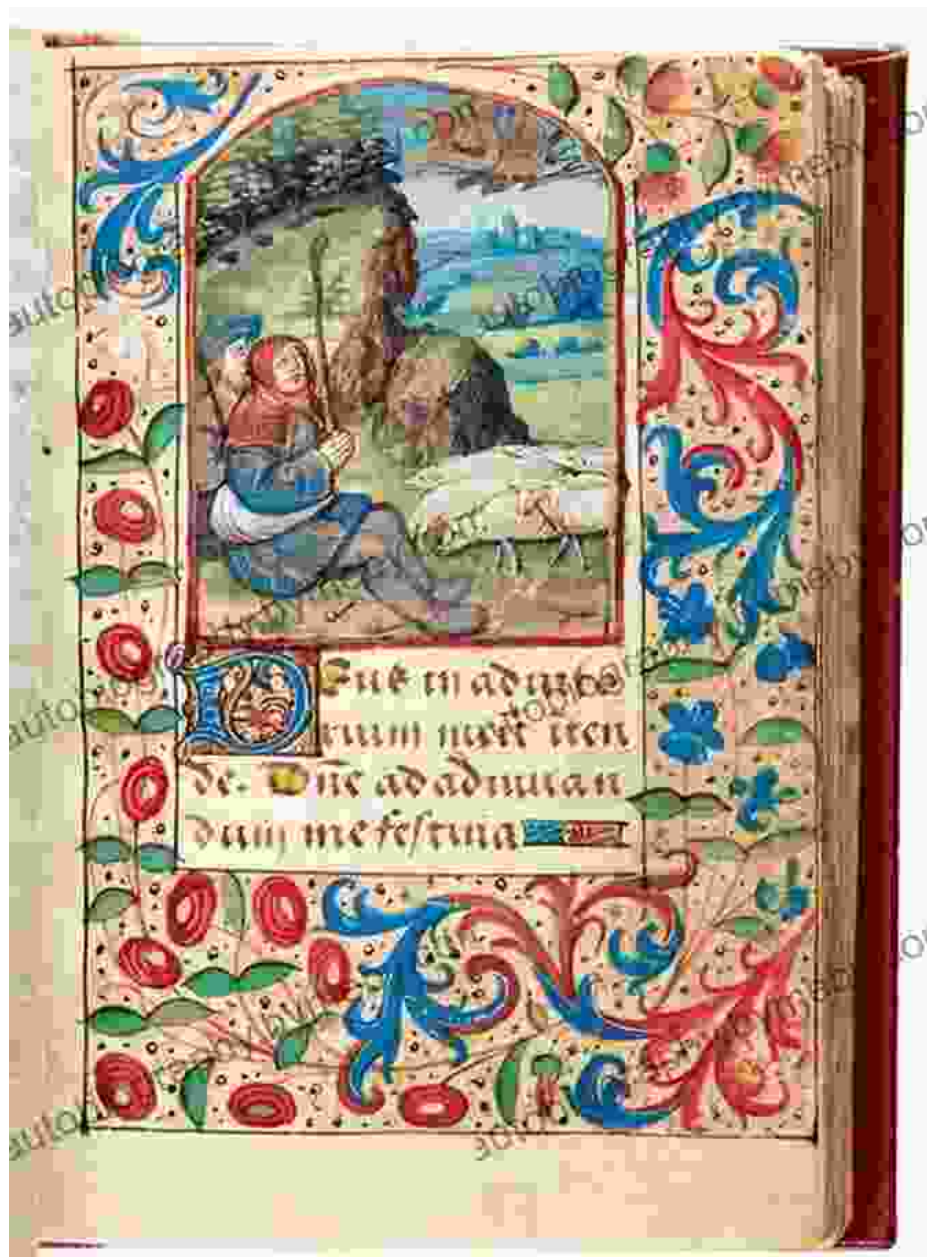 DEus in adiuto
rium meū iten
de. Dñe ad adiuuan
dum me festina